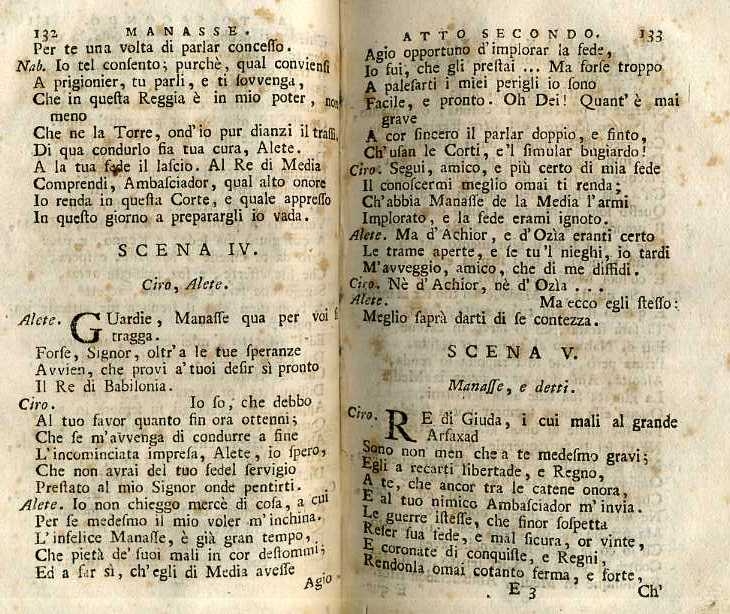 132 MANASSE.
Per te una volta di parlar concesso.
Nab. Io tel consento; purchè, qual conviensi
A prigionier, tu parli, e ti sovvenga,
Che in questa Reggia è in mio poter, non
meno
Che ne la Torre, ond'io pur dianzi il trassi.
Di qua condurlo sia tua cura, Alete.
A la tua fede il lascio. Al Re di Media
Comprendi, Ambasciador, qual alto onore
Io renda in questa Corte, e quale appresso
In questo giorno a preparargli io vada.
SCENA IV.
Ciro, Alete.
Alete. GUardie, Manasse qua per voi si
tragga.
Forse, Signor, oltr'a le tue speranze
Avvien, che provi a'tuoi desir sì pronto
Il Re di Babilonia.
Ciro. Io so, che debbo
Al tuo favor quanto fin ora ottenni;
Che se m'avvenga di condurre a fine
L'incominciata impresa, Alete, io spero,
Che non avrai del tuo fedel servigio
Prestato al mio Signor onde pentirti.
Alete. Io non chieggo mercè di cosa, a cui
Per se medesmo il mio voler m'inchina.
L'infelice Manasse, è già gran tempo,
Che pietà de' suoi mali in cor destommi;
Ed a far sì, ch'egli di Media avesse
Agio
ATTO SECONDO. 133
Agio opportuno d'implorar la fede,
Io fui, che gli prestai ... Ma forse troppo
A palesarti i miei perigli io sono
Facile, e pronto. Oh Dei! Quant'è mai
grave
A cor sincero il parlar doppio, e finto,
Ch'usan le Corti, e'l simular bugiardo!
Ciro. Segui, amico, e più certo di mia fede
Il conoscermi meglio omai ti renda;
Ch'abbia Manasse de la Media l'armi
Implorato, e la fede erami ignoto.
Alete. Ma d'Achior, e d'Ozìa eranti certo
Le trame aperte, e se tu'l nieghi, io tardi
M'avveggio, amico, che di me diffidi.
Ciro. Nè d'Achior, nè d'Ozìa ...
Alete. Ma ecco egli stesso:
Meglio saprà darti di se contezza.
SCENA V.
Manasse, e detti.
Ciro. RE di Giuda, i cui mali al grande
Arfaxad
Sono non men che a te medesmo gravi;
Egli a recarti libertade, e Regno,
A te, che ancor tra le catene onora,
E al tuo nimico Ambasciador m'invia.
Le guerre istesse, che finor sospetta
Reser sua fede, e mal sicura, or vinte,
E coronate di conquiste, e Regni,
Rendonla omai cotanto ferma, e forte,
E 3 Ch'